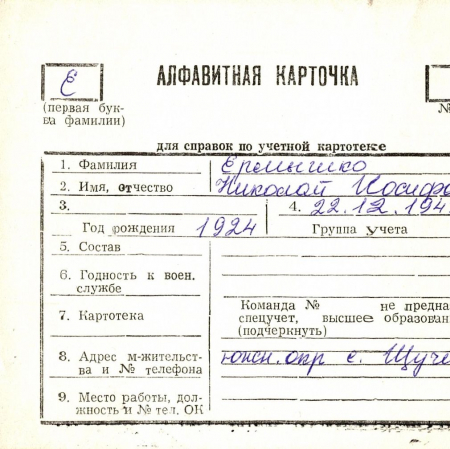 Е
АЛФАВИТНАЯ КАРТОЧКА
(первая бук-
ва фамилии)
№
для справок по учетной картотеке
1. Фамилия Ермышко
2. Имя, отчество Николай Иосифо
3. 4. 22.12.194
Год рождения 1924 Группа учета
5. Состав
6. Годность к воен.
службе
7. Картотека
Команда № не предна
спецучет, высшее образован
(подчеркнуть)
8. Адрес м-жительст-
ва и № телефона
окр с. Щуче
9. Место работы, дол-
жность и № тел. ОК